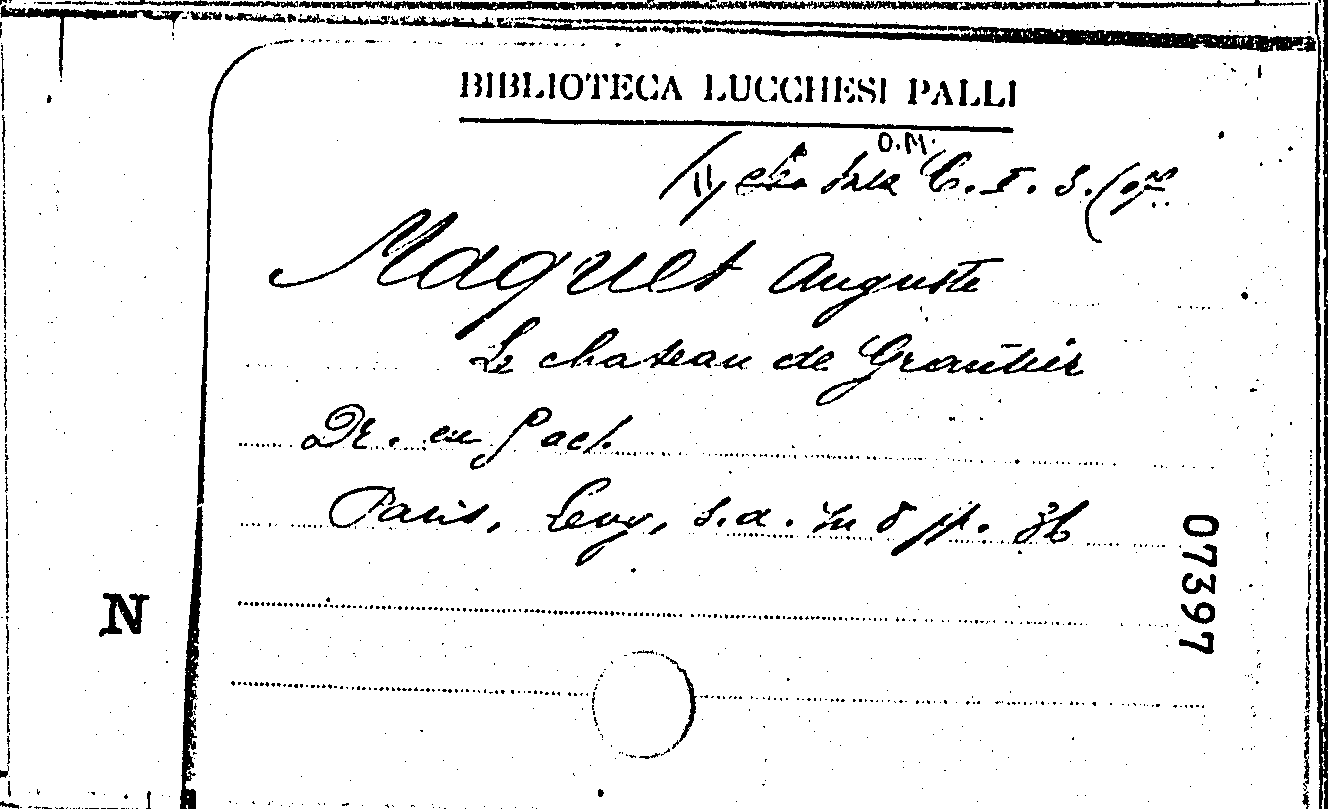 BIBLIOTECA LUCCHESI PALLI
O.M.
C. I. 3. (
Maquet Auguste
Le chateau de Grantier
Dr. en 5 act.
Paris, Levy, s.a. in 8 pp. 36
N
07397